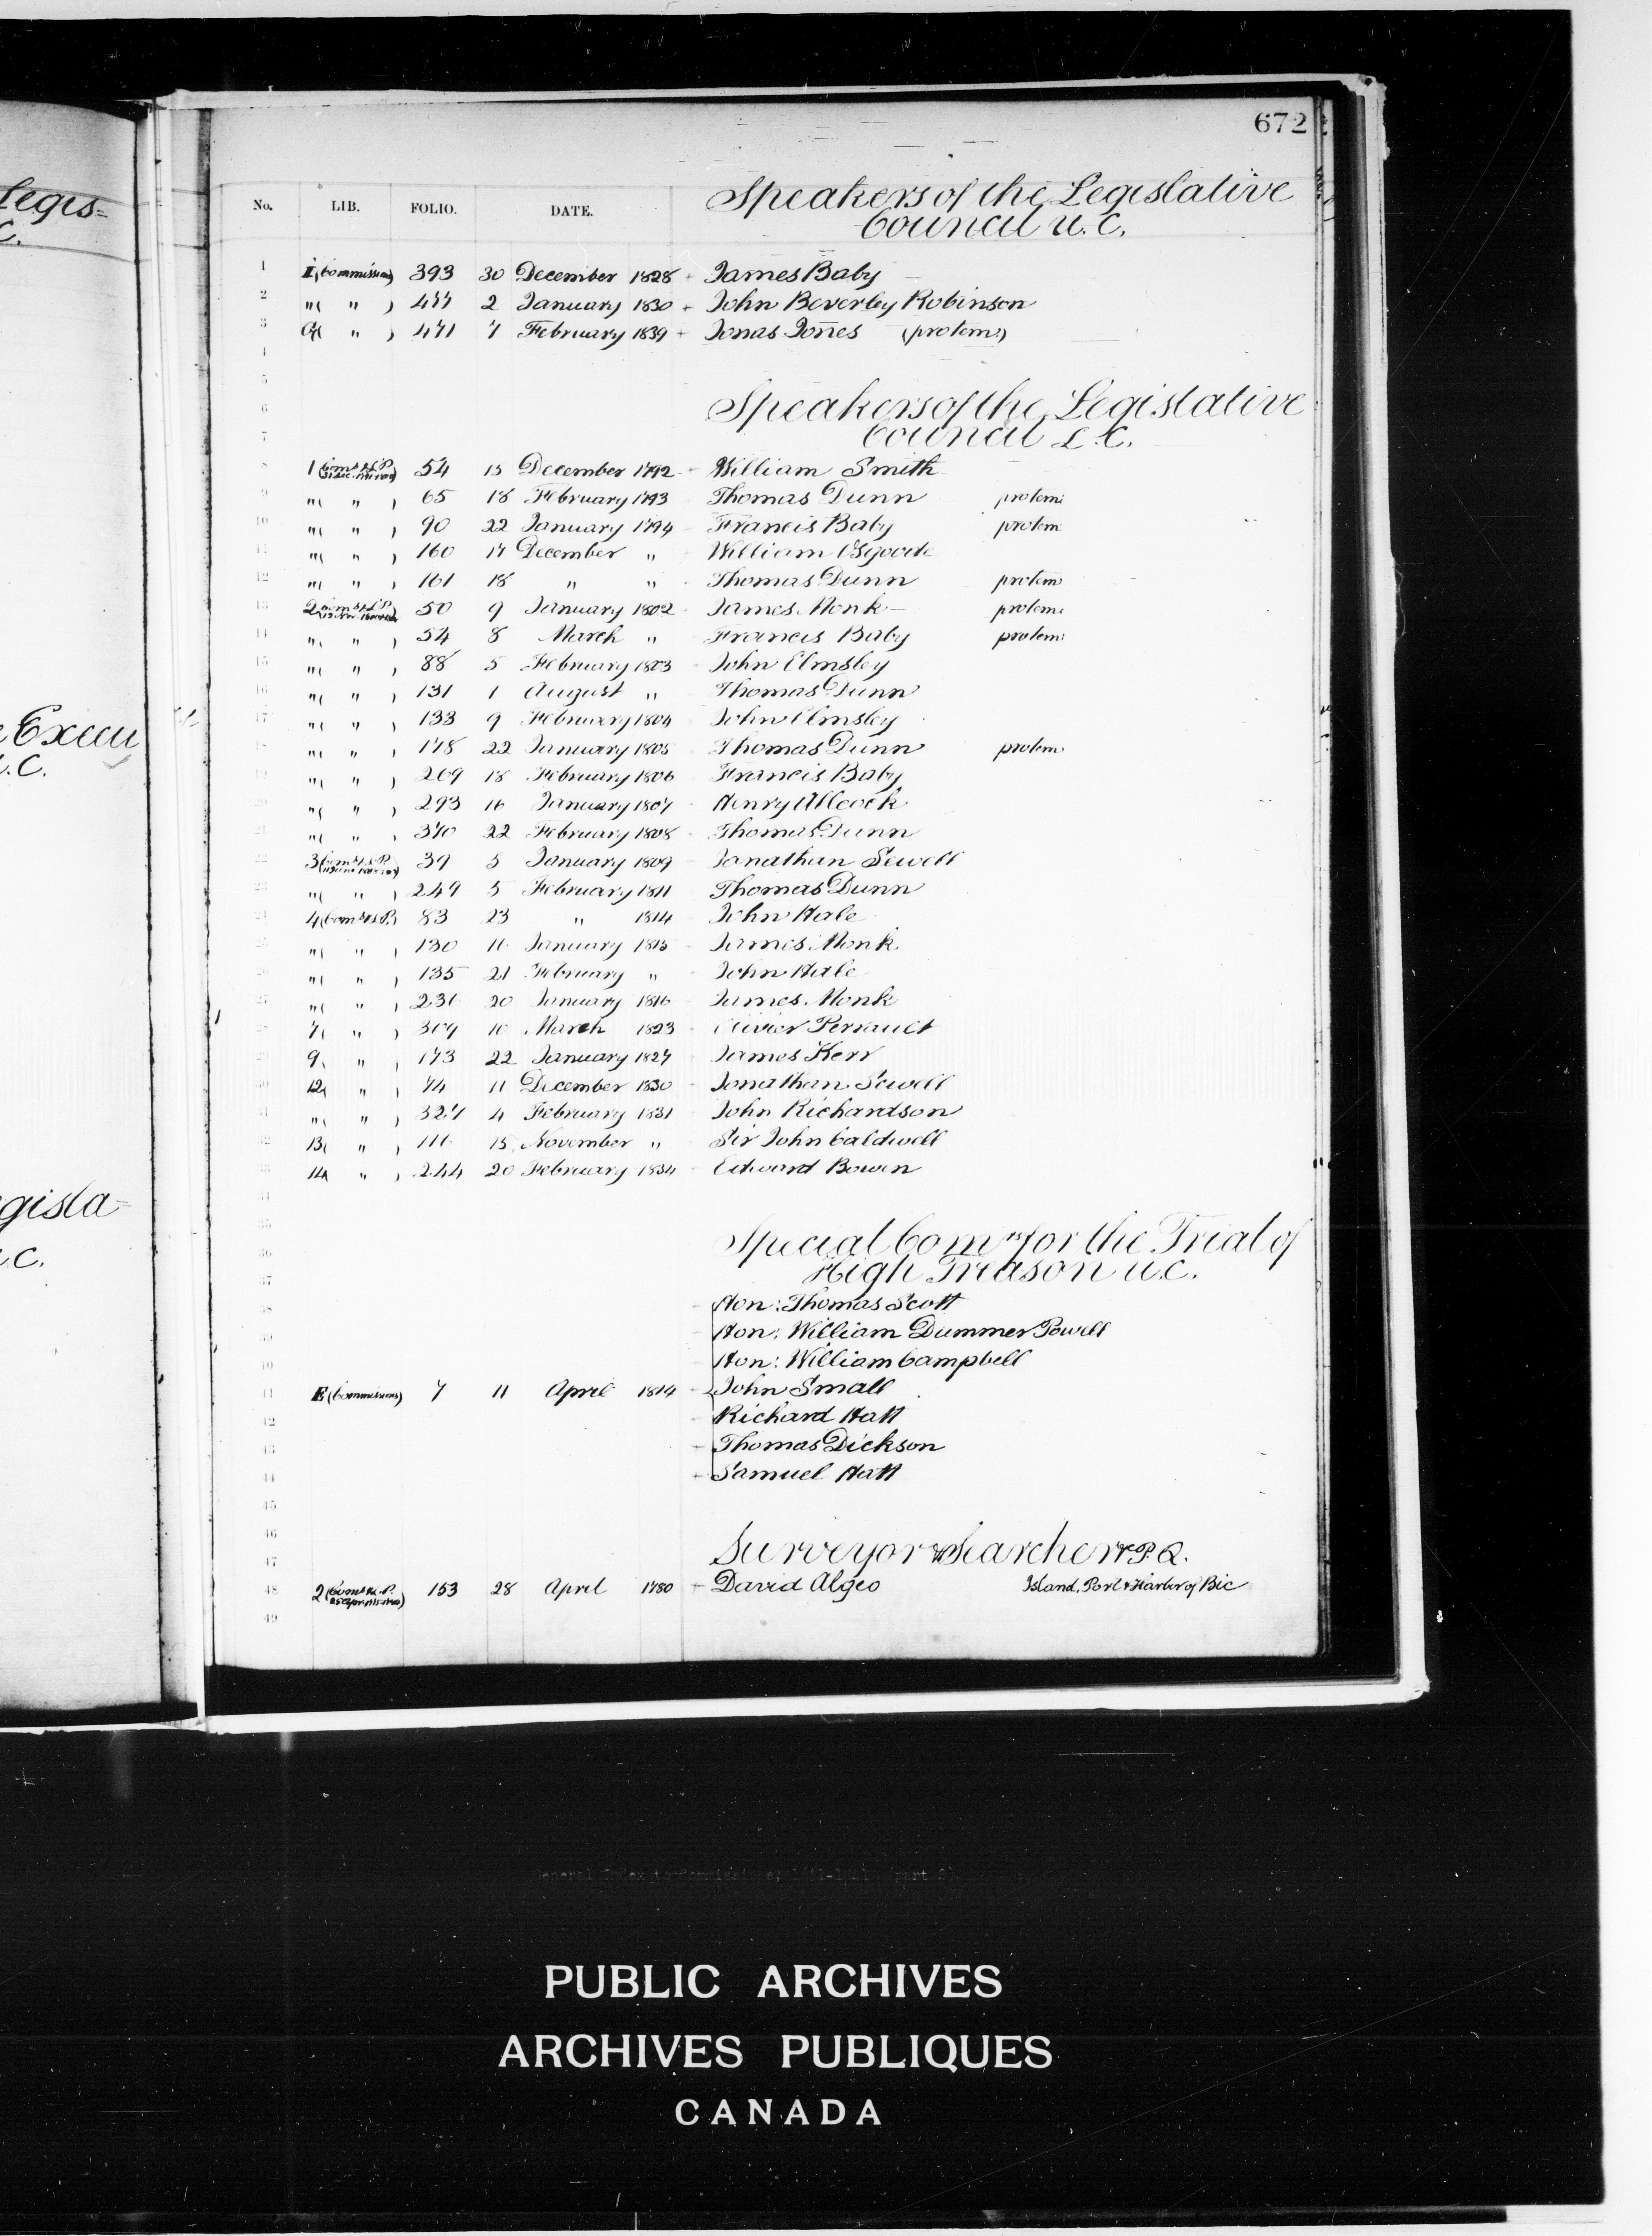 672
Legis=
C.
No. LIB. FOLIO. DATE. Speakers of the Legislative
Council U.C.
1 I (Commissions) 393 30 December 1828 James Baby
2 " ( " ) 477 2 January 1830 John Beverley Robinson
3 ( " ) 471 7 February 1839 Jonas Jones (protem:)
4
5
6 Speakers of the Legislative
7 Council L.C.
8 1 54 15 December 1792 William Smith
9 " ( " ) 65 18 February 1793 Thomas Dunn protem:
10 " ( " ) 90 22 January 1794 Francis Baby protem
11 " ( " ) 160 17 December " William Osgoode
12 " ( " ) 161 18 " " Thomas Dunn protem
13 2 50 9 January 1802 James Monk protem:
14 " ( " ) 54 8 March " Francis Baby protem:
15 " ( " ) 88 5 February 1803 John Elmsley
16 " ( " ) 131 1 August " Thomas Dunn
17 " ( " ) 133 9 February 1804 John Elmsley
18 " ( " ) 178 22 January 1805 Thomas Dunn protem
19 " ( " ) 269 18 February 1806 Francis Baby
20 " ( " ) 293 16 January 1807 Henry Allcock
21 " ( " ) 370 22 February 1808 Thomas Dunn
22 3 39 5 January 1809 Jonathan Sewell
23 " ( " ) 249 5 February 1811 Thomas Dunn
24 4 83 23 " 1814 John Hale
25 " ( " ) 130 16 January 1815 James Monk
26 " ( " ) 135 21 February " John Hale
27 " ( " ) 236 20 January 1816 James Monk
28 7 ( " ) 309 10 March 1823 Olivier Perrault
29 9 ( " ) 173 22 January 1827 James Kerr
30 12 ( " ) 74 11 December 1830 Jonathan Sewell
31 " ( " ) 327 4 February 1831 John Richardson
32 13 ( " ) 116 15 November " Sir John Caldwell
33 14 ( " ) 244 20 February 1834 Edward Bowen
34
e Execu
.C.
gisla=
.C.
35 Special Com rs for the Trial of
36 High Treason U.C.
37
38 Hon: Thomas Scott
39 Hon: William Dummer Powell
40 Hon: William Campbell
41 E (Commissions) 7 11 April 1814 John Small
42 Richard Hatt
43 Thomas Dickson
44 Samuel Hatt
45
46
47 Surveyor & Searcher P.Q.
48 2 153 28 April 1780 David Algeo Island, Port & Harbor of Bic
49
General Index to Commissions, (part 2).
PUBLIC ARCHIVES
ARCHIVES PUBLIQUES
CANADA